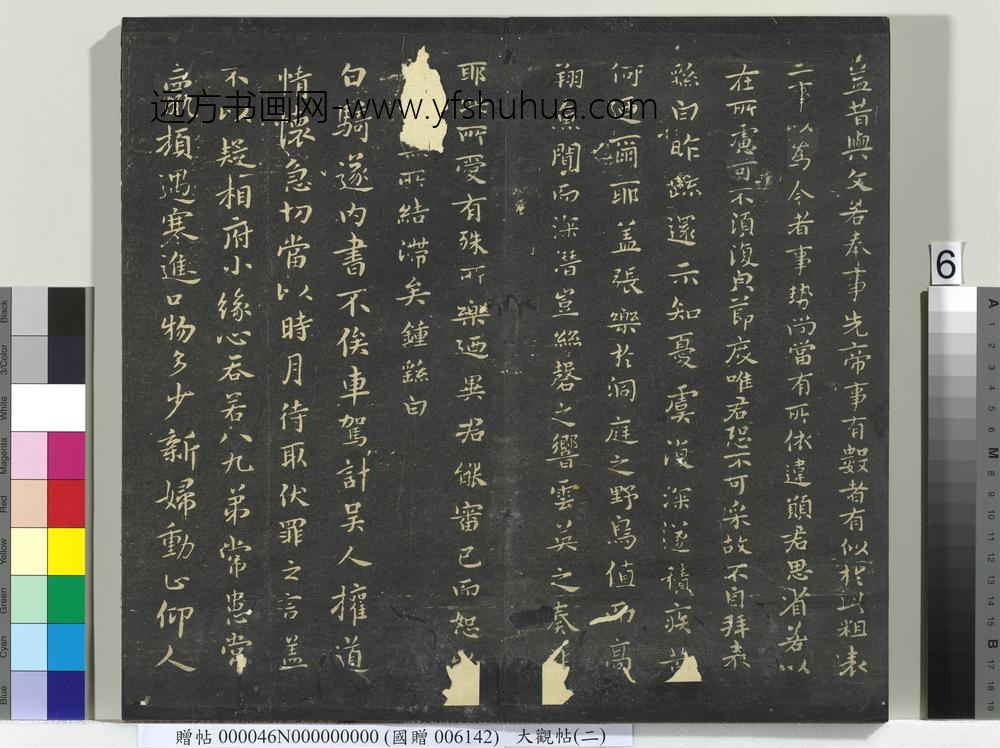 益昔與文若奉事先帝事有數者有似於此粗表
二事以為今者事勢尚當有所依違願君思省若以
在所慮可不須復節度唯君恐不可采故不自拜表
繇白昨疏還示知憂虞復深遂積疾
何乃爾耶蓋張樂於洞庭之野鳥值而高
翔魚聞而深潛豈絲磬之響雲英之奏
耶此所受有殊所樂廼異君能審己而恕
無所結滯矣鍾繇白
白騎遂內書不俟車駕計吴人權道
情懷急切當以時月待取伏罪之言蓋
不以疑相府小緣心吞若八九弟常患常
羸頓遇寒進口物多少新婦動止仰人
远方书画网-www.yfshuhua.com
6
贈帖 000046N000000000 (國贈 006142) 大觀帖(二)
Black
3/Color
White
Magenta
Red
Yellow
Green
Cyan
Blue
A
1
2
3
4
5
6
M
8
9
10
11
12
13
14
15
B
17
18
19